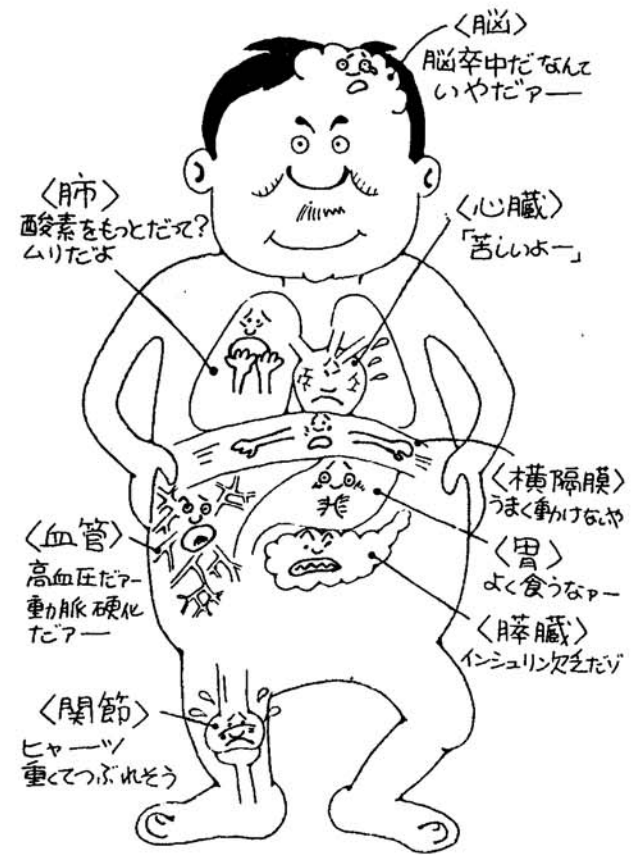 〈脳〉
脳卒中だなんて
いやだァー
〈肺〉
酸素をもっとだって？
ムリだよ
〈心臓〉
「苦しいよー」
〈横隔膜〉
うまく動けないや
〈胃〉
よく食うなァー
〈膵臓〉
インシュリン欠乏だゾ
〈血管〉
高血圧だァー
動脈硬化
だァー
〈関節〉
ヒャーッ
重くてつぶれそう